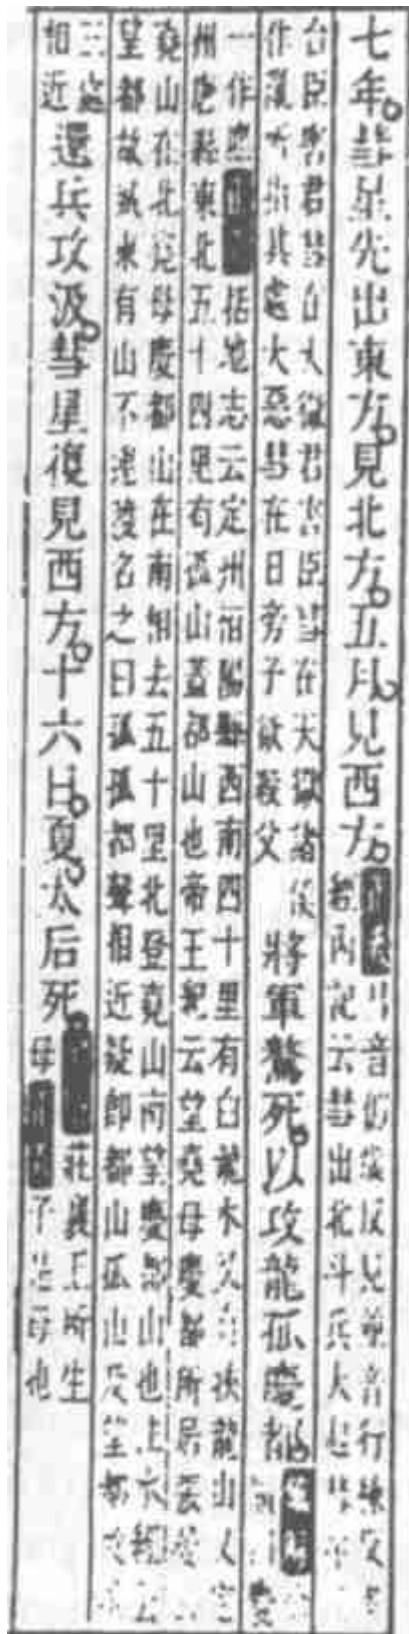 七年彗星先出東方見北方五月見西方
音似歲反見並音行練反
經內記云彗出北斗兵大起彗
台臣害君彗在太微君害臣彗在天獄諸侯
作亂所指其處大惡彗在日旁子欲殺父
將軍驁死以攻龍孤慶都
慶
一作麃括地志云定州恒陽縣西南四十里有白龍水又有挾龍山又定
州唐縣東北五十四里有孤山蓋都山也帝王紀云望堯母慶都所居張晏
堯山在北堯母慶都山在南相去五十里北登堯山南望慶都山也注水經云
望都故城東有山不連陵名之曰孤孤都聲相近疑即都山孤山及望都故
三處
相近
還兵攻汲彗星復見西方十六日夏太后死
莊襄王所生
母子楚母也